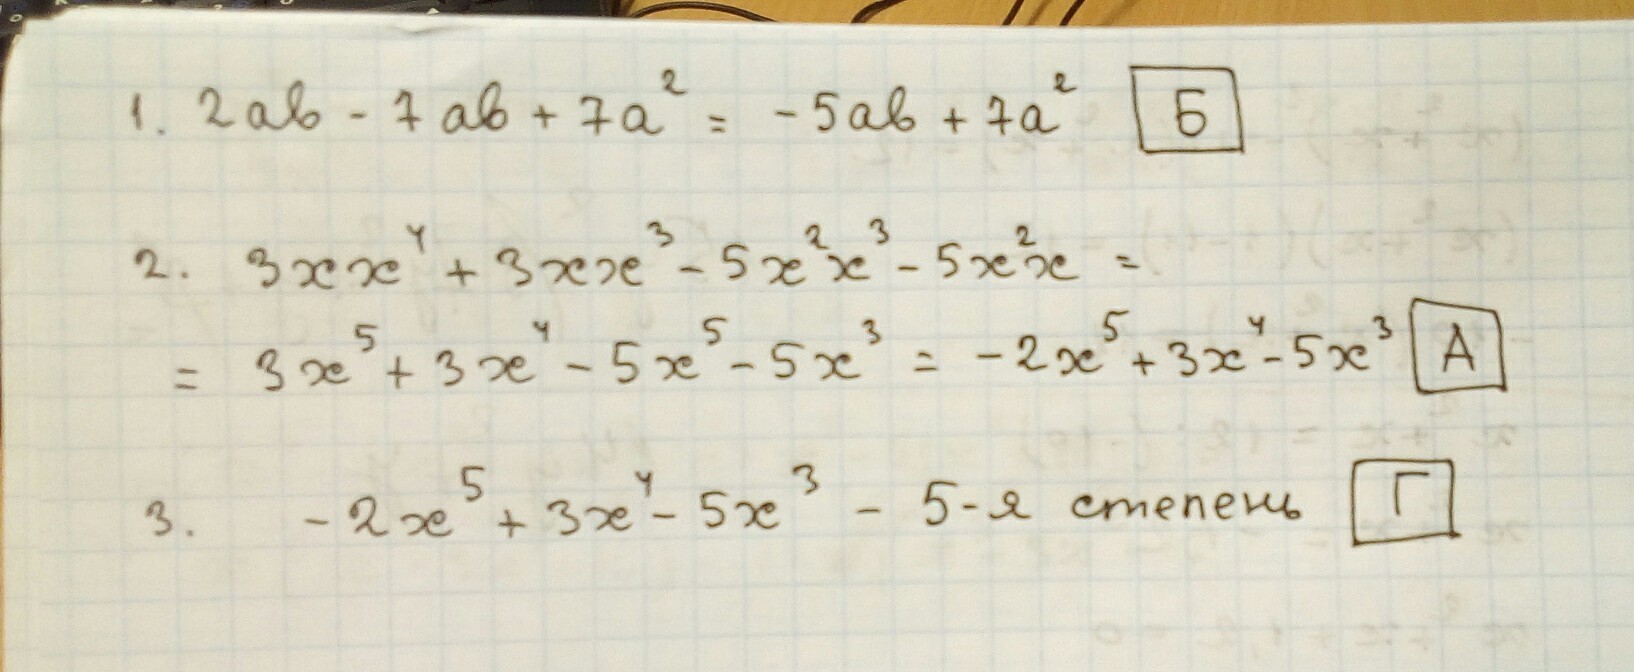 1. 2ab - 7ab + 7a² = -5ab + 7a² Б
2. 3xx⁴ + 3xx³ - 5x²x³ - 5x²x =
= 3x⁵ + 3x⁴ - 5x⁵ - 5x³ = -2x⁵ + 3x⁴ - 5x³ А
3. -2x⁵ + 3x⁴ - 5x³ - 5-я степень Г